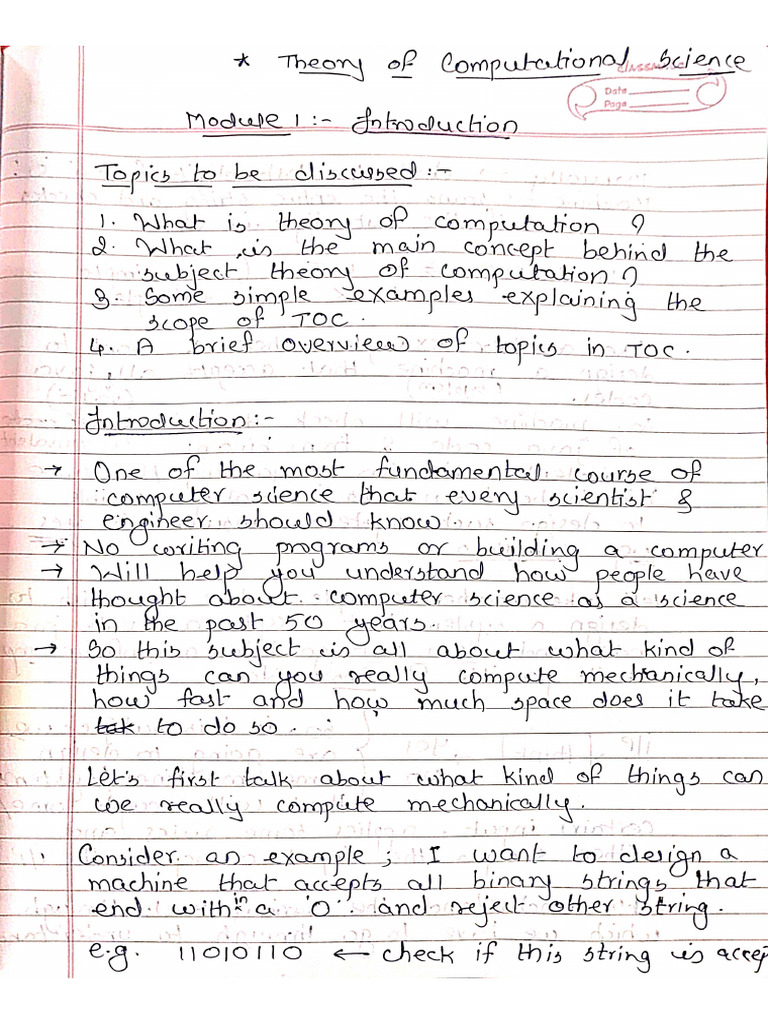 * Theory of Computational Science
classmate
Date
Page
Module 1 :- Introduction
Topics to be discussed :-
1. What is theory of computation ?
2. What is the main concept behind the
subject theory of computation ?
3. Some simple examples explaining the
scope of TOC.
4. A brief overview of topics in TOC.
Introduction :-
→ One of the most fundamental course of
computer science that every scientist &
engineer should know.
→ No writing programs or building a computer
→ Will help you understand how people have
thought about computer science as a science
in the past 50 years.
→ So this subject is all about what kind of
things can you really compute mechanically,
how fast and how much space does it take
tak to do so.
Let's first talk about what kind of things can
we really compute mechanically.
Consider an example ; I want to design a
machine that accepts all binary strings that
end with in a '0' and reject other string.
e.g. 11010110 ← check if this string is accep